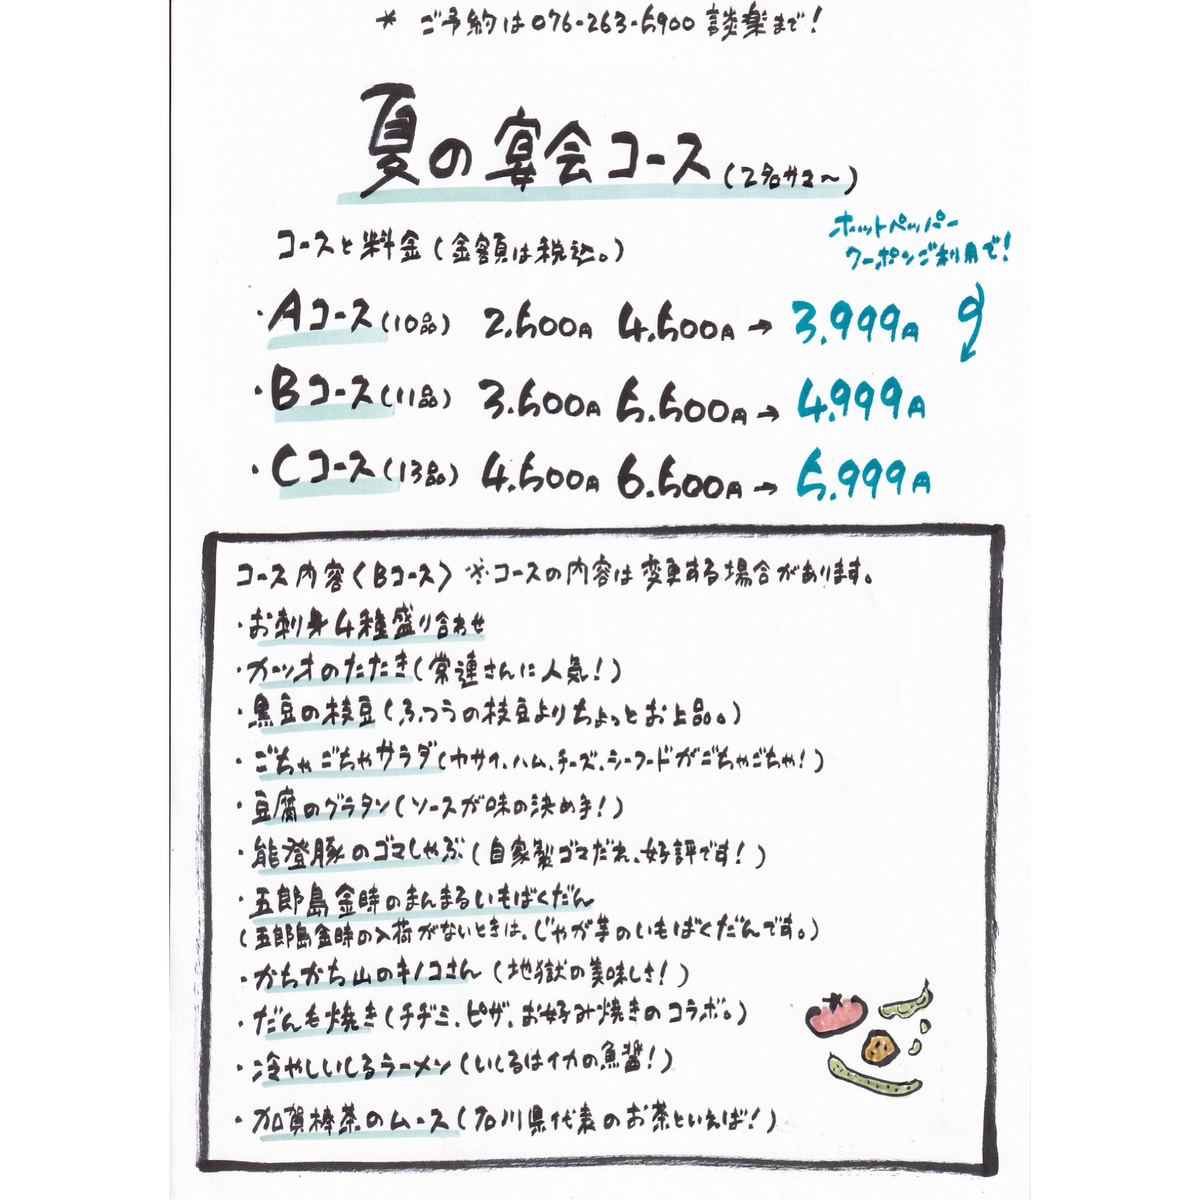 * ご予約は076-263-5900 談楽まで!
夏の宴会コース(2名サマ〜)
コースと料金(金額は税込。)
ホットペッパー
クーポンご利用で!
・Aコース(10品) 2.500円 4.500円→3.999円
・Bコース(11品) 3.500円 5.500円→4.999円
・Cコース(13品) 4.500円 6.500円→5.999円
コース内容〈Bコース〉※コースの内容は変更する場合があります。
・お刺身4種盛り合わせ
・カツオのたたき(常連さんに人気!)
・黒豆の枝豆(ふつうの枝豆よりちょっとお上品。)
・ごちゃごちゃサラダ(ヤサイ、ハム、チーズ、シーフードがごちゃごちゃ!)
・豆腐のグラタン(ソースが味の決め手!)
・能澄豚のゴマしゃぶ(自家製ゴマだれ、好評です!)
・五郎島金時のまんまるいもばくだん
(五郎島金時の入荷がないときは、じゃが芋のいもばくだんです。)
・かちかち山のキノコさん(地獄の美味しさ!)
・だんも焼き(チヂミ、ピザ、お好み焼きのコラボ。)
・冷やしいしるラーメン(いしるはイカの魚醤!)
・加賀棒茶のムース(石川県代表のお茶といえば!)